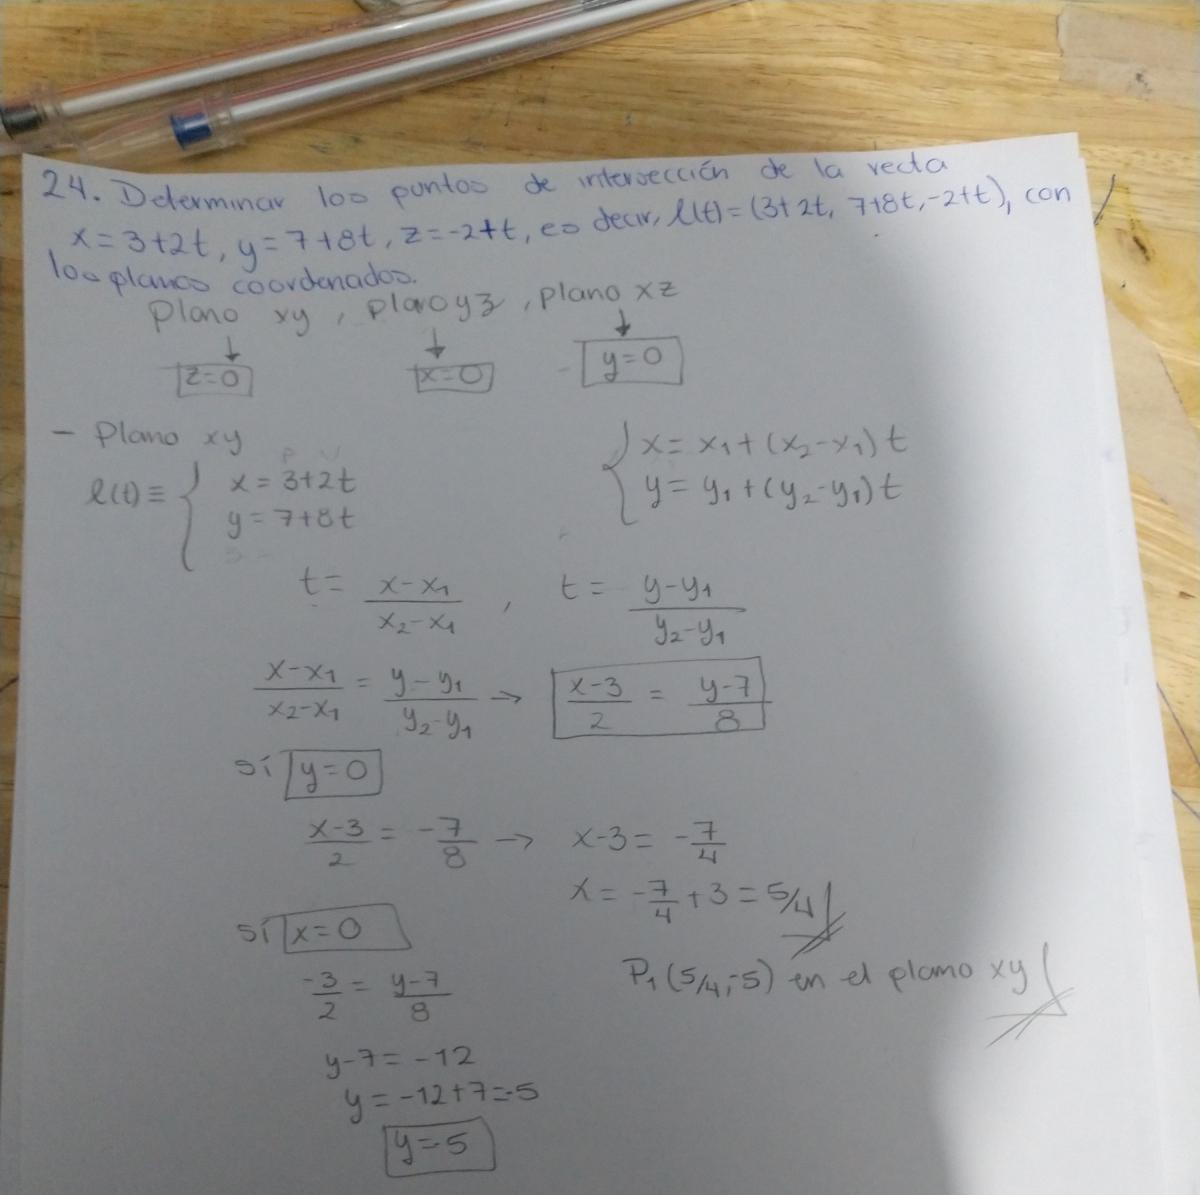 24. Determinar los puntos de intersección de la recta
x=3+2t, y=7+8t, z=-2+t, es decir, l(t)=(3+2t, 7+8t,-2+t), con
los planos coordenados.
Plano xy, plano yz, plano xz
↓ ↓ ↓
z=0 x=0 y=0
- Plano xy
l(t)≡ { x=3+2t
y=7+8t
{ x=x₁+(x₂-x₁)t
y=y₁+(y₂-y₁)t
t= (x-x₁)/(x₂-x₁) , t= (y-y₁)/(y₂-y₁)
(x-x₁)/(x₂-x₁) = (y-y₁)/(y₂-y₁) → (x-3)/2 = (y-7)/8
sí y=0
(x-3)/2 = -7/8 → x-3= -7/4
x= -7/4+3=5/4
sí x=0
-3/2 = (y-7)/8
P₁(5/4,-5) en el plano xy
y-7=-12
y=-12+7=-5
y=-5